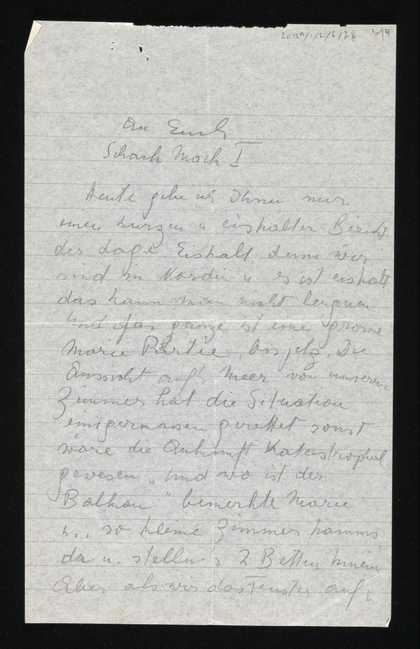 An Euch
Schach Moch I
Heute gebe ich Ihnen nur
einen kurzen u eiskalten Bericht
der Lage. Eiskalt denn wir
sind im Norden u es ist eiskalt
das kann man nicht leugnen
Und das ganze ist eine grosse
Marie Partie bis jetz. Die
Ansicht aufs Meer von unserem
Zimmer hat die Situation
einigermassen gerettet sonst
wäre die Ankunft Katastrophal
gewesen „Und wo ist der
Balkon" bemerkte Marie
u so kleine Zimmer
da u. stellen 2 Betten hinein
Aber als wir das Fenster auf